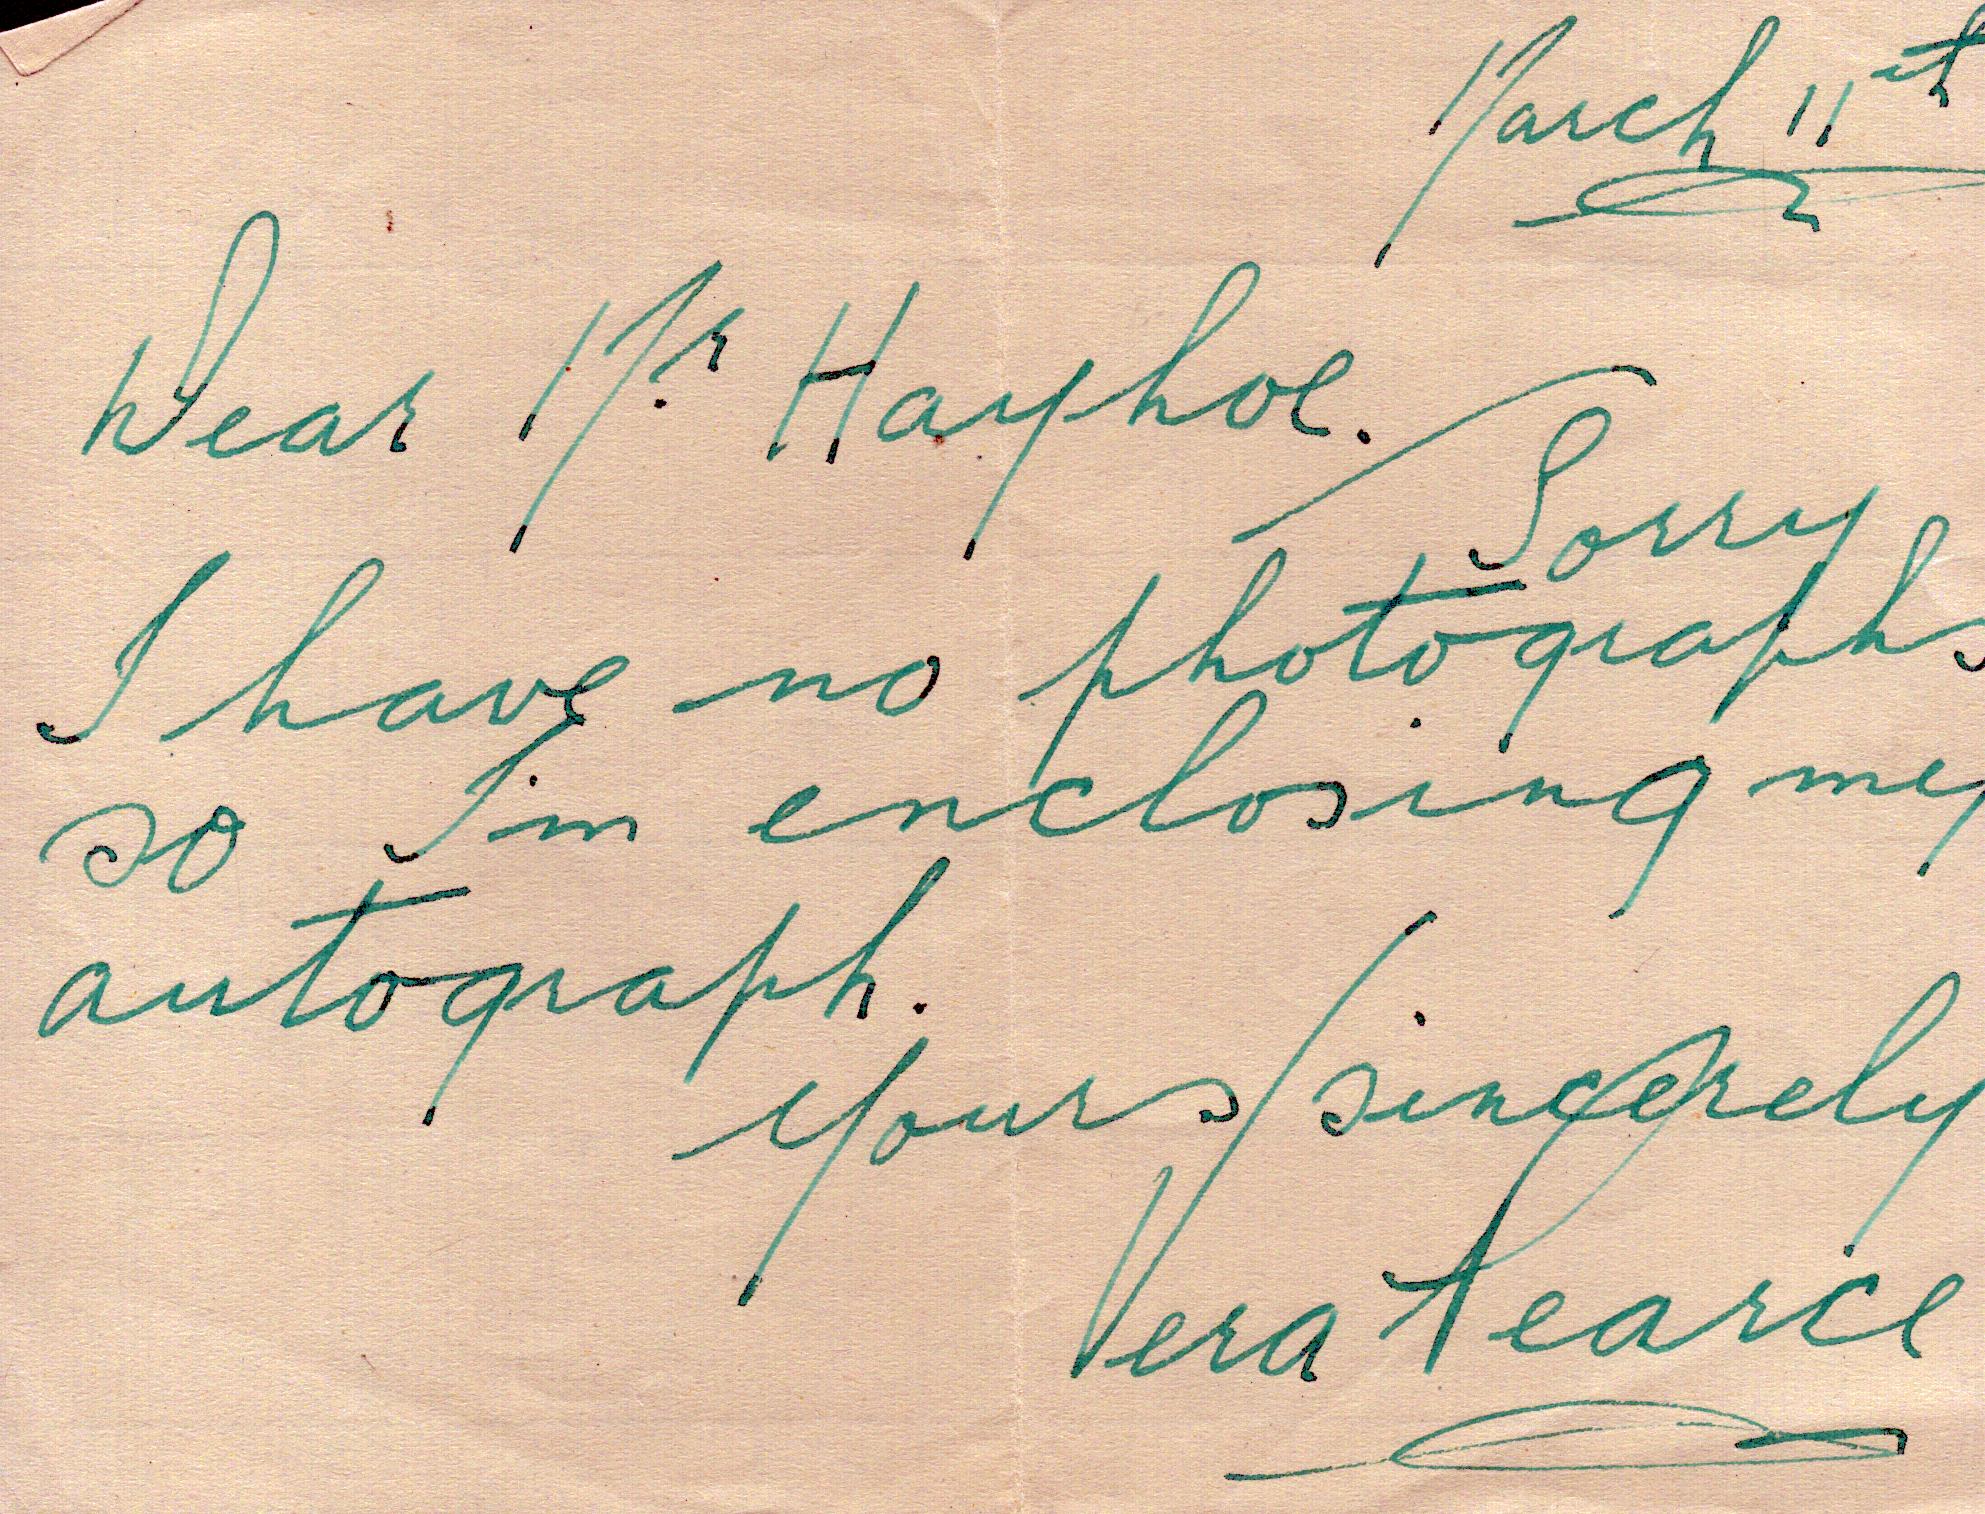 March 11th
Dear Mr Hayhoe.
Sorry
I have no photographs
so I'm enclosing my
autograph.
Yours sincerely
Vera Pearce